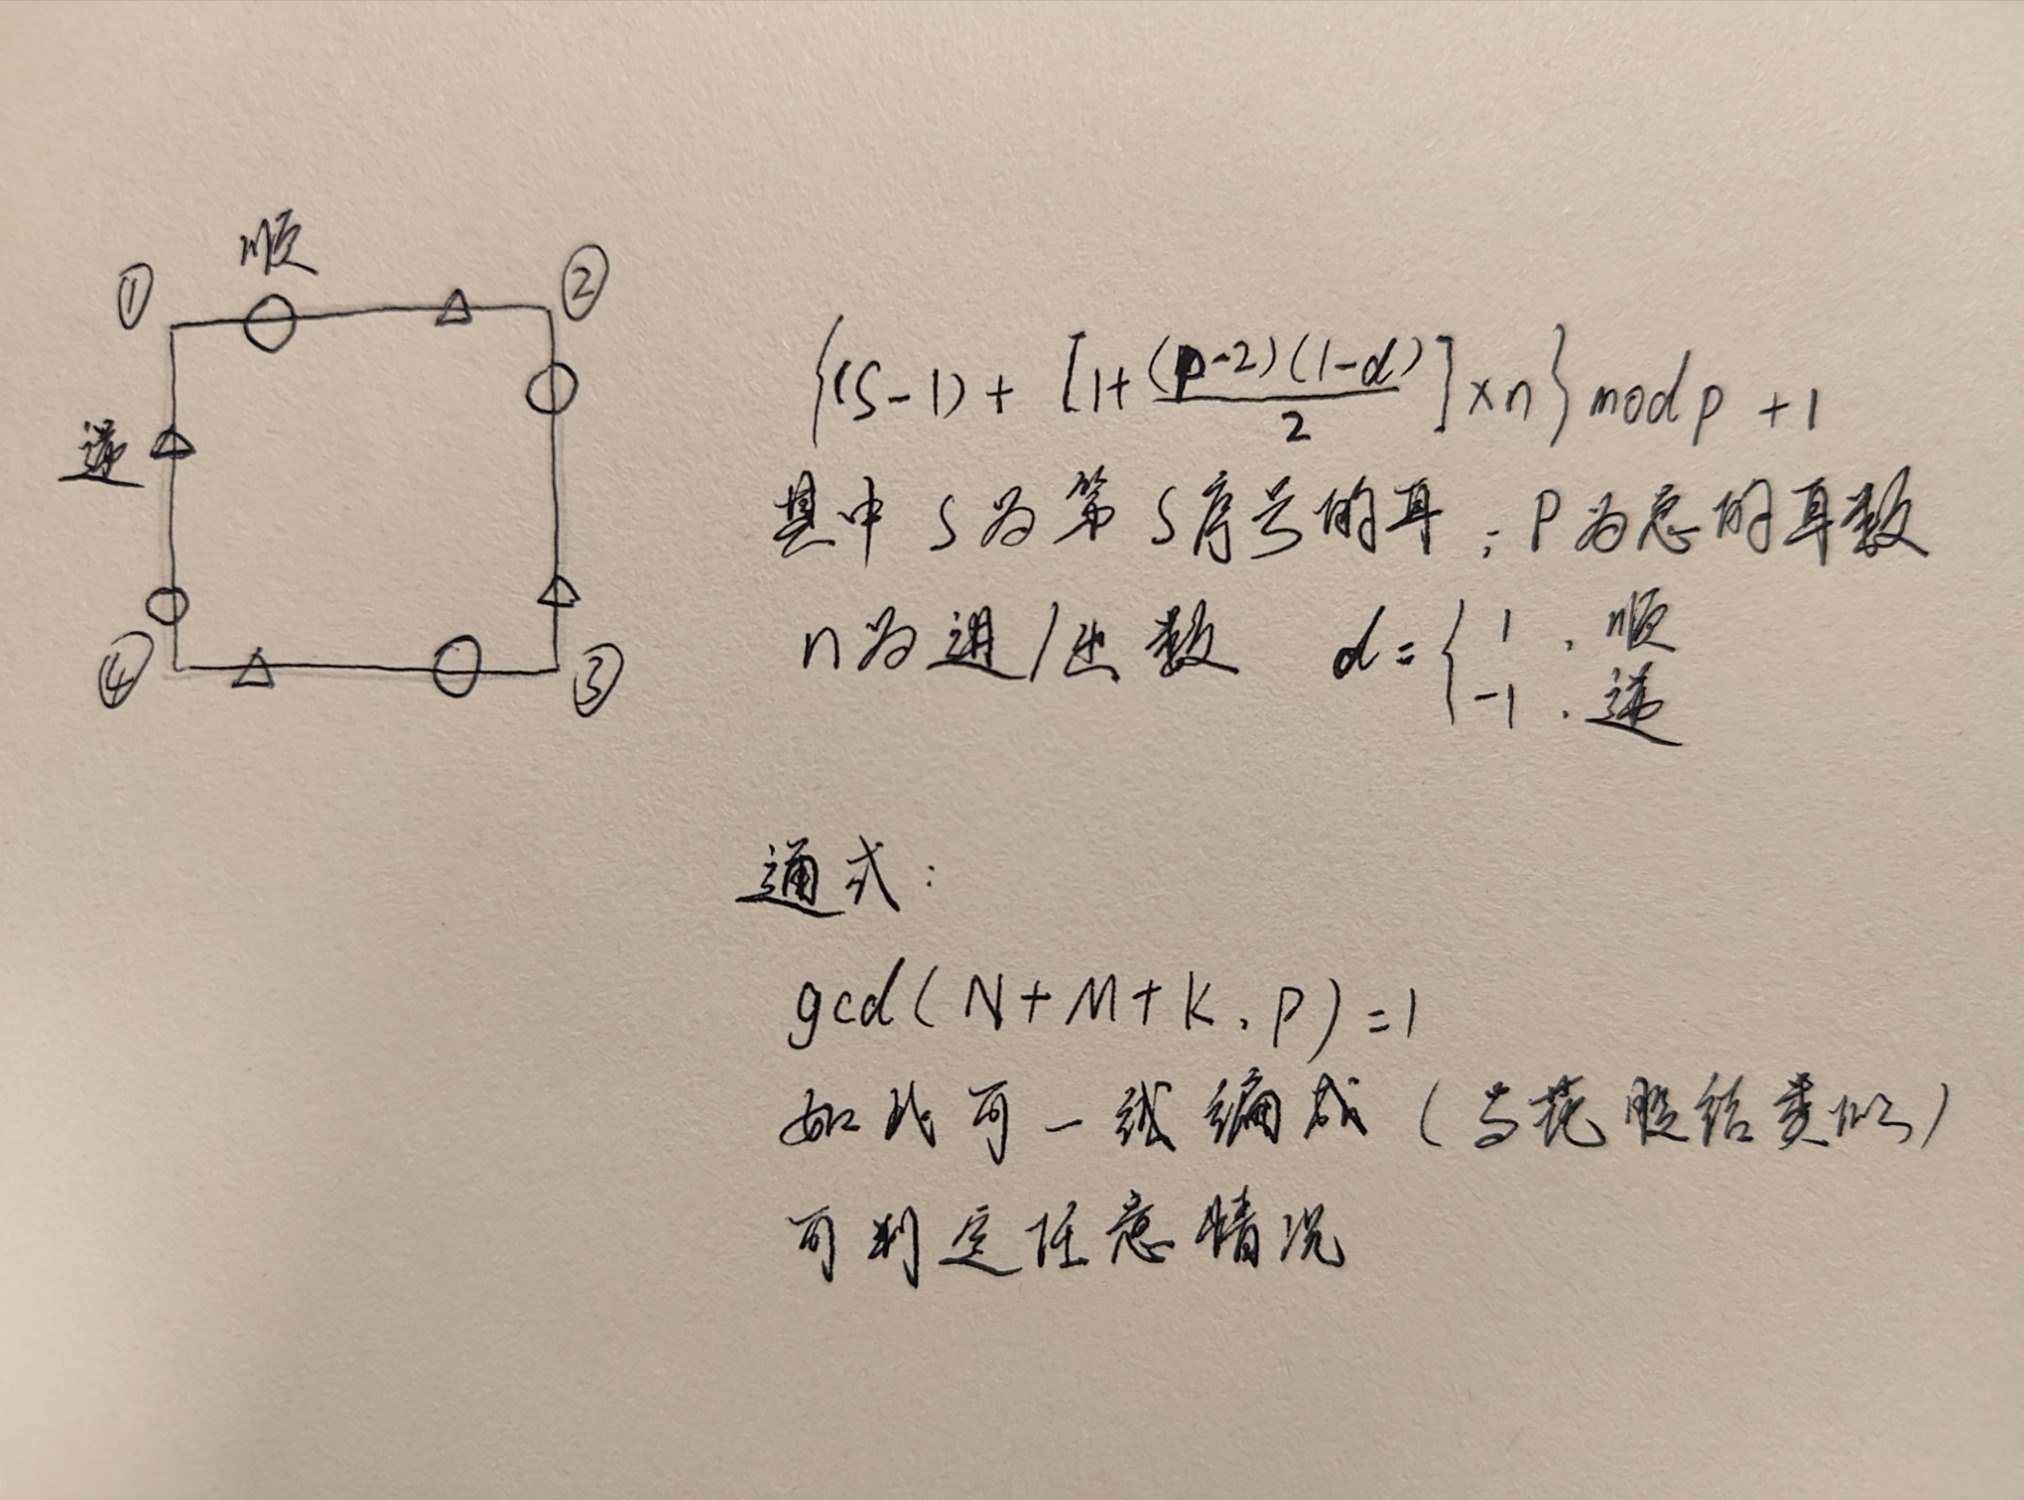 顺
① ②
逆
④ ③
{(S-1)+[1+(p-2)(1-d)/2]×n} mod p +1
其中 S为第 S序号的耳;P为总的耳数
n为进/出数 d={1,顺
-1,逆
通式:
gcd(N+M+K,P)=1
如此可一线编成(与花股结类似)
可判定任意情况